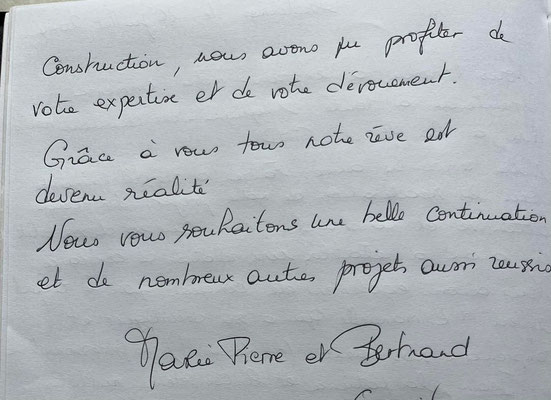 Construction, nous avons pu profiter de
votre expertise et de votre dévouement.
Grâce à vous tous notre rêve est
devenu réalité
Nous vous souhaitons une belle continuation
et de nombreux autres projets aussi réussis
Marie Pierre et Bertrand